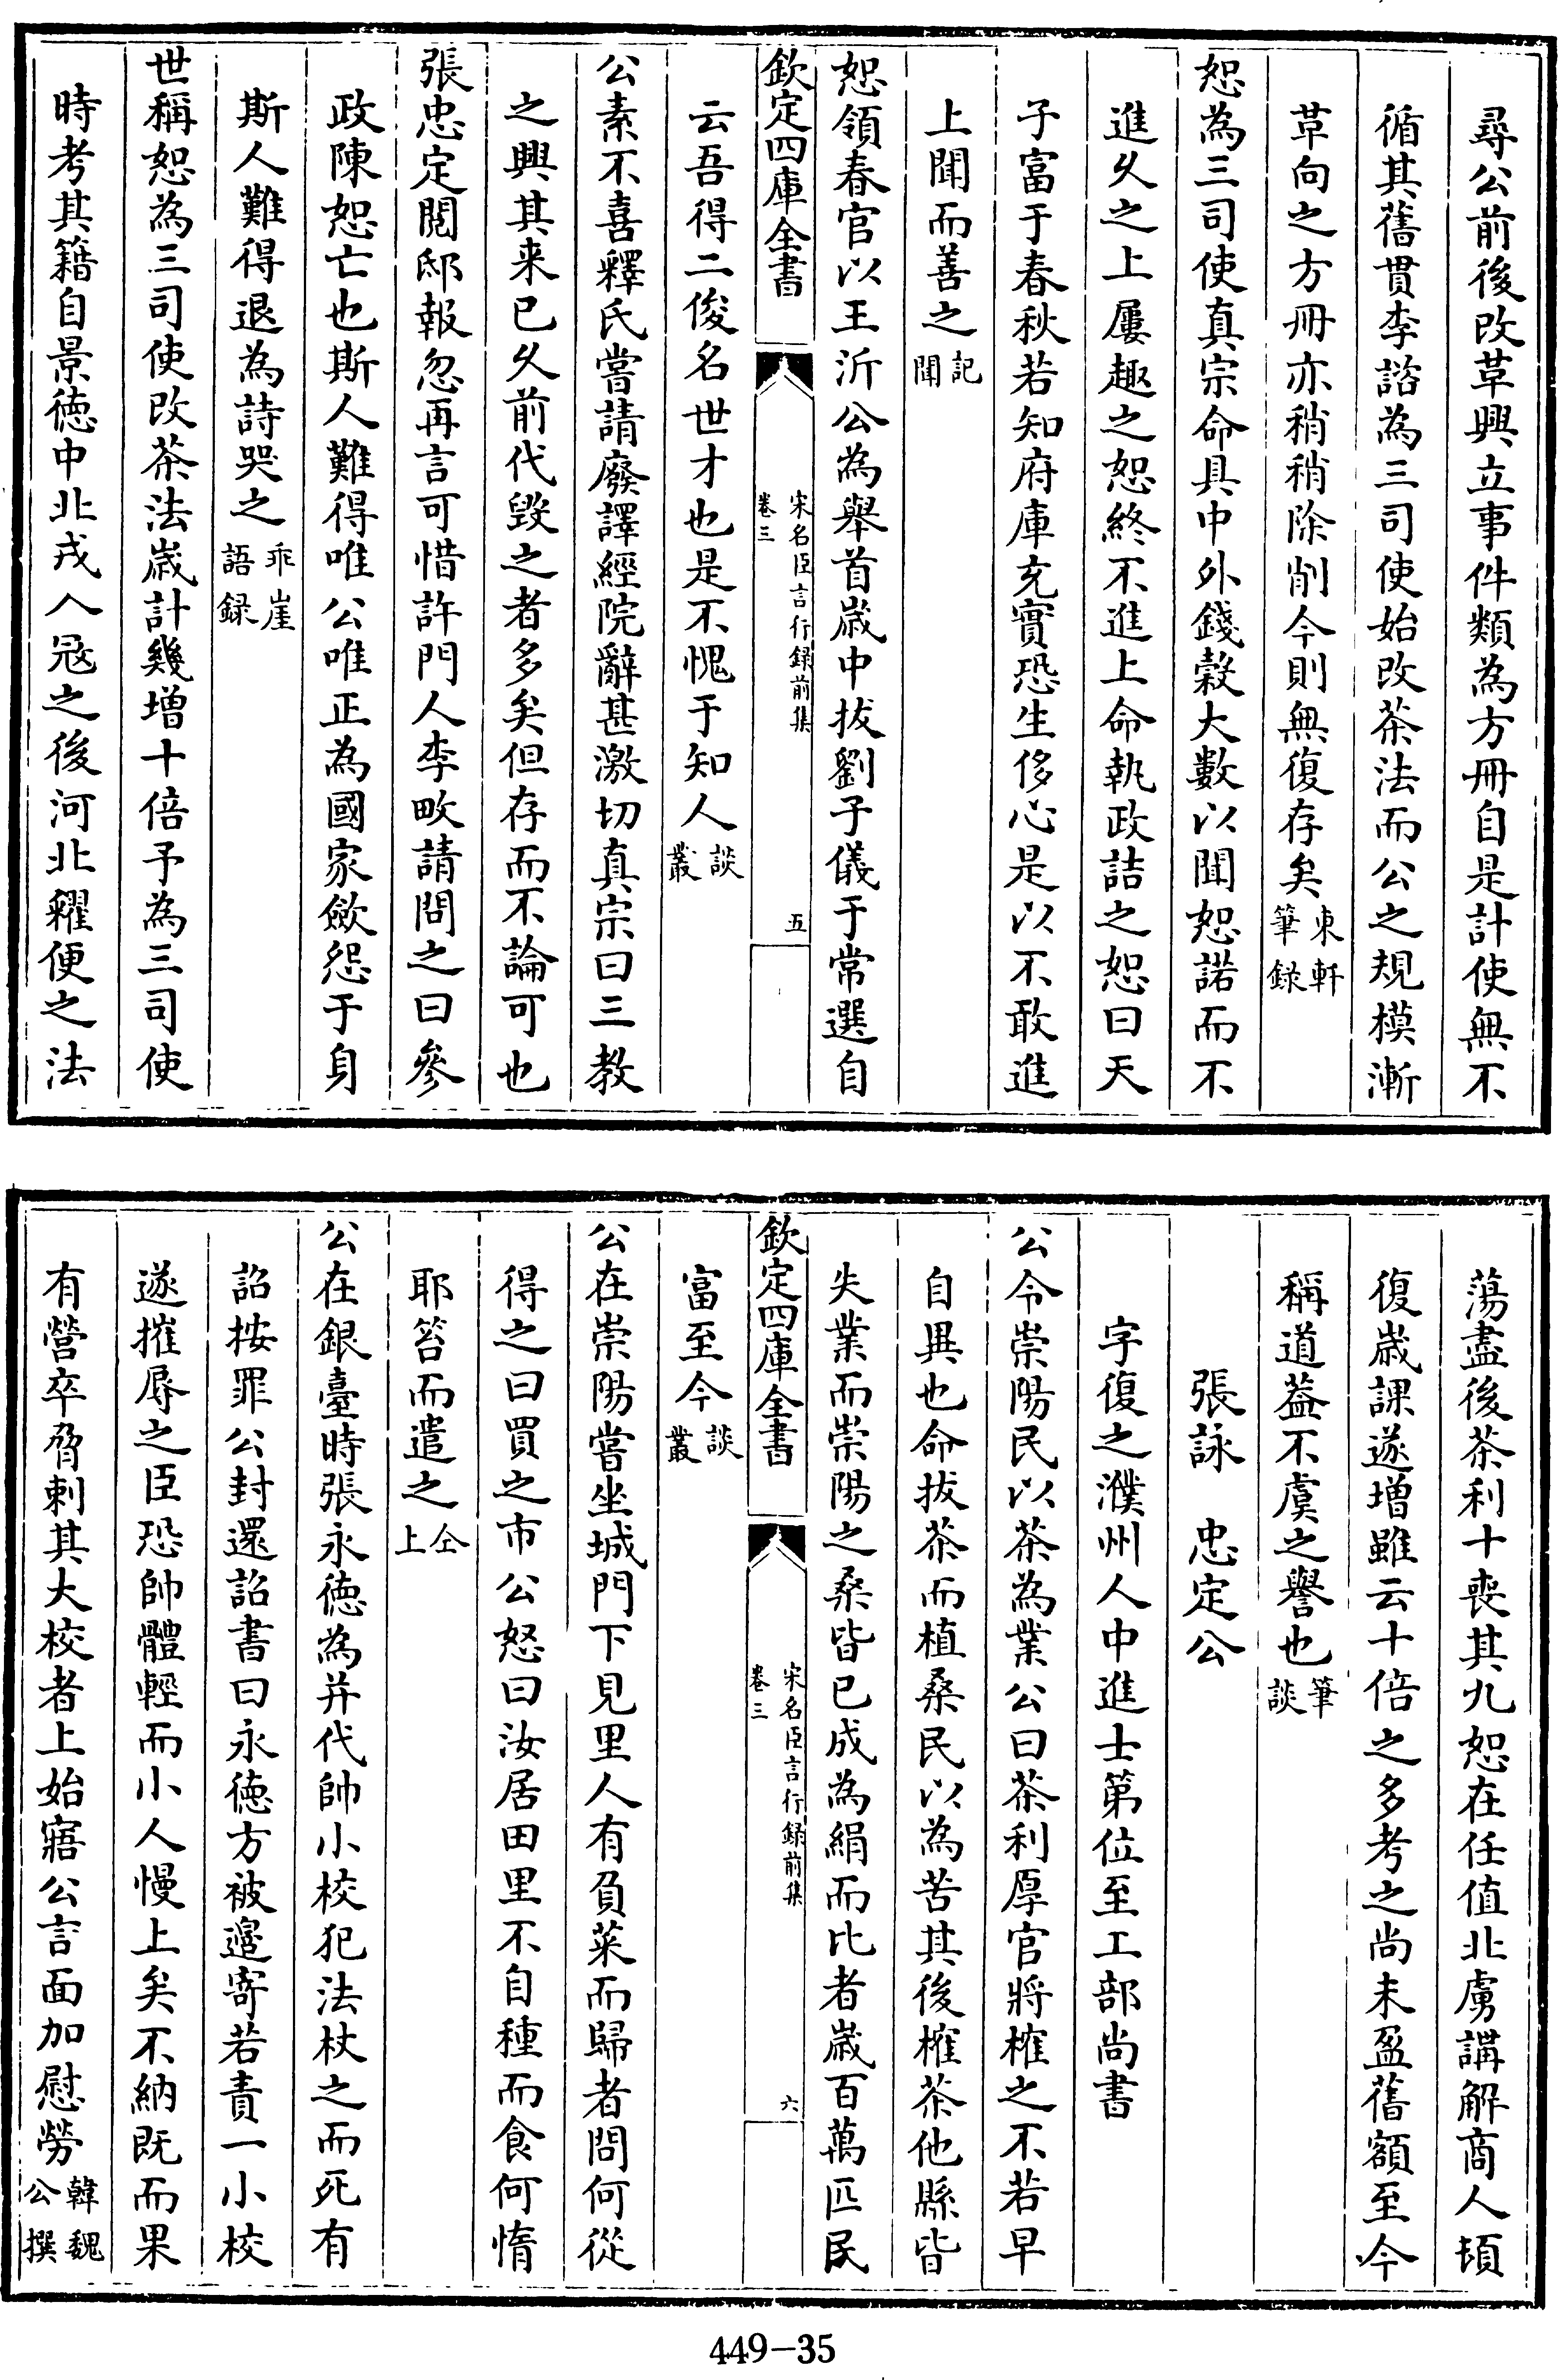 尋公前後改革興立事件類為方冊自是計使無不
循其舊貫李諮為三司使始改茶法而公之規模漸
革向之方冊亦稍稍除削今則無復存矣東軒筆録
恕為三司使真宗命具中外錢糓大數以聞恕諾而不
進乆之上屢趣之恕終不進上命執政詰之恕曰天
子富于春秋若知府庫充實恐生侈心是以不敢進
上聞而善之記聞
恕領春官以王沂公為舉首嵗中拔劉子儀于常選自
欽定四庫全書
宋名臣言行録前集
卷三
五
云吾得二俊名世才也是不愧于知人談叢
公素不喜釋氏嘗請廢譯經院辭甚激切真宗曰三教
之興其来已乆前代毀之者多矣但存而不論可也
張忠定閲邸報忽再言可惜許門人李畋請問之曰參
政陳恕亡也斯人難得唯公唯正為國家歛怨于身
斯人難得退為詩哭之乖崖語録
世稱恕為三司使改茶法嵗計幾增十倍予為三司使
時考其籍自景徳中北戎入冦之後河北糴便之法
蕩盡後茶利十喪其九恕在任值北虜講解商人頓
復嵗課遂增雖云十倍之多考之尚未盈舊額至今
稱道葢不虞之譽也筆談
張詠　忠定公
字復之濮州人中進士第位至工部尚書
公令崇陽民以茶為業公曰茶利厚官將榷之不若早
自異也命拔茶而植桑民以為苦其後榷茶他縣皆
失業而崇陽之桑皆已成為絹而比者嵗百萬匹民
欽定四庫全書
宋名臣言行録前集
卷三
六
富至今談叢
公在崇陽嘗坐城門下見里人有負菜而歸者問何從
得之曰買之市公怒曰汝居田里不自種而食何惰
耶笞而遣之仝上
公在銀臺時張永徳為并代帥小校犯法杖之而死有
詔按罪公封還詔書曰永徳方被邉寄若責一小校
遂摧辱之臣恐帥體輕而小人慢上矣不納既而果
有營卒脅刺其大校者上始寤公言面加慰勞韓魏公撰
449-35